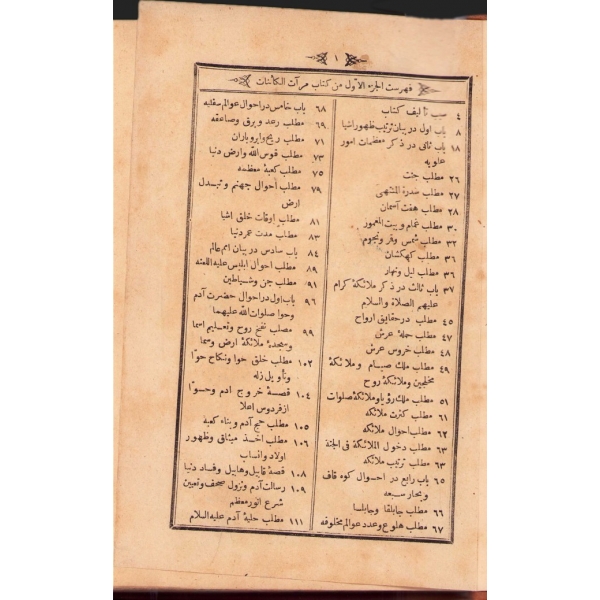 ١
فهرست الجزء الأول من كتاب مرآت الكائنات
٤ سبب تأليف كتاب
٨ باب اول در بيان ترتيب ظهور اشيا
١٨ باب ثانى در ذكر معظمات امور
علويه
٢٦ مطلب جنت
٢٧ مطلب سدرة المنتهى
٢٨ مطلب هفت آسمان
٣٠ مطلب غمام و بيت المعمور
٣٢ مطلب شمس وقمر ونجوم
٣٦ مطلب كهكشان
٣٦ مطلب ليل ونهار
٣٧ باب ثالث در ذكر ملائكۀ كرام
عليهم الصلاة والسلام
٤٥ مطلب در حقايق ارواح
٤٧ مطلب حملۀ عرش
٤٨ مطلب خروس عرش
٤٩ مطلب ملك صيام وملائكۀ
مخلصين وملائكۀ روح
٥١ مطلب ملك رؤيا وملائكۀ صلوات
٦١ مطلب كثرت ملائكه
٦٢ مطلب احوال ملائكه
٦٣ مطلب دخول الملائكة فى الجنة
٦٣ مطلب ترتيب ملائكه
٦٥ باب رابع در احوال كوه قاف
وبحار سبعه
٦٦ مطلب جابلقا وجابلسا
٦٧ مطلب هلوع وعدد عوالم مخلوقه
٦٨ باب خامس در احوال عوالم سفليه
٦٩ مطلب رعد وبرق وصاعقه
٧١ مطلب ريح وابر وباران
٧٣ مطلب قوس الله وارض دنيا
٧٥ مطلب كعبۀ معظمه
٧٩ مطلب أحوال جهنم وتبدل
ارض
٨١ مطلب اوقات خلق اشيا
٨٣ مطلب مدت عمر دنيا
٨٤ باب سادس در بيان امم عالم
٨٩ مطلب احوال ابليس عليه اللعنه
٩١ مطلب جن وشياطين
٩٦ باب اول در احوال حضرت آدم
وحوا صلوات الله عليهما
٩٩ مطلب نفخ روح وتعليم اسما
وسجدۀ ملائكۀ ارض وسما
١٠٢ مطلب خلق حوا ونكاح حوا
وتأويل زله
١٠٤ قصۀ خروج ادم وحوا
از فردوس اعلا
١٠٥ مطلب حج آدم وبناء كعبه
١٠٦ مطلب اخذ ميثاق وظهور
اولاد وانساب
١٠٨ قصۀ قابيل وهابيل وفساد دنيا
١٠٩ رسالت آدم ونزول صحف وتعيين
شرع انور معظم
١١١ مطلب حليۀ آدم عليه السلام